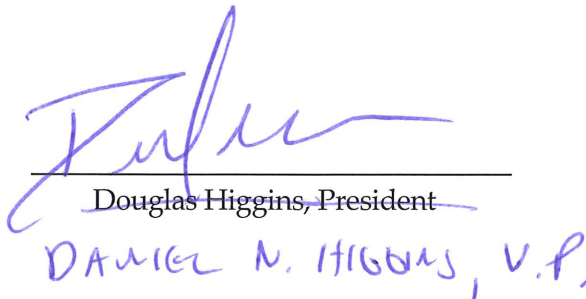 Douglas Higgins, President
DANIEL N. HIGGINS, V.P.